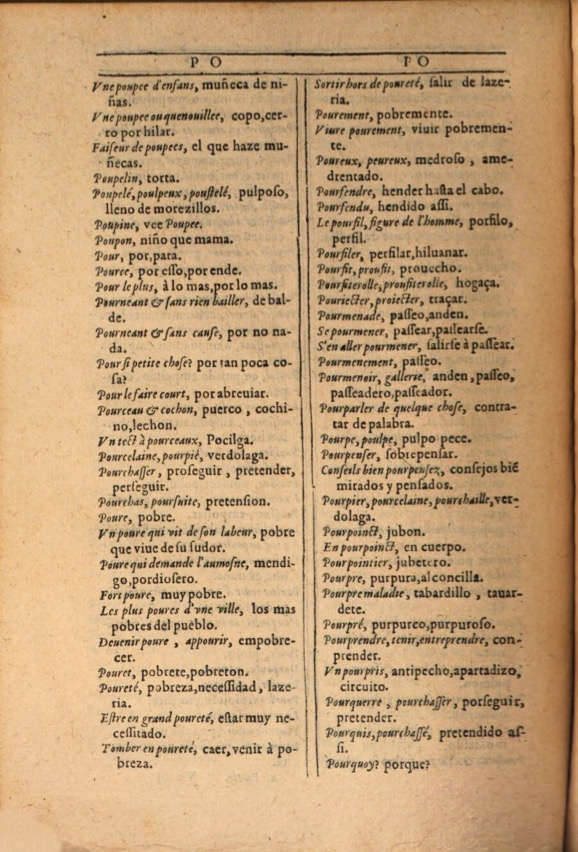 P O
Vne poupee d'enfans, muñeca de ni-
ñas.
Vne poupee ou quenouillee, copo,cer-
ro por hilar.
Faiseur de poupees, el que haze mu-
ñecas.
Poupelin, torta.
Poupelé, poulpeux, poustelé, pulposo,
lleno de morezillos.
Poupine, vee Poupee.
Poupon, niño que mama.
Pour, por,para.
Pource, por esso,por ende.
Pour le plus, à lo mas,por lo mas.
Pourneant & sans rien bailler, de bal-
de.
Pourneant & sans cause, por no na-
da.
Pour si petite chose? por tan poca co-
sa?
Pour le faire court, por abreuiar.
Pourceau & cochon, puerco, cochi-
no,lechon.
Vn tect à pourceaux, Pocilga.
Pourcelaine, pourpié, verdolaga.
Pourchasser, proseguir, pretender,
perseguir.
Pourchas, poursuite, pretension.
Poure, pobre.
Vn poure qui vit de son labeur, pobre
que viue de su sudor.
Poure qui demande l'aumosne, mendi-
go,pordiosero.
Fort poure, muy pobre.
Les plus poures d'vne ville, los mas
pobres del pueblo.
Deuenir poure, appourir, empobre-
cer.
Pouret, pobrete,pobreton.
Poureté, pobreza,necessidad, laze-
ria.
Estre en grand poureté, estar muy ne-
cessitado.
Tomber en poureté, caer,venir à po-
breza.
P O
Sortir hors de poureté, salir de laze-
ria.
Pourement, pobremente.
Viure pourement, viuir pobremen-
te.
Poureux, peureux, medroso, ame-
drentado.
Pourfendre, hender hasta el cabo.
Pourfendu, hendido assi.
Le pourfil, figure de l'homme, porfilo,
perfil.
Pourfiler, perfilar,hiluanar.
Pourfit, proufit, prouecho.
Pourfiterolle, proufiterolle, hogaça.
Pouriecter, proiecter, traçar.
Pourmenade, passeo,anden.
Se pourmener, passear,passearse.
S'en aller pourmener, salirse à passear.
Pourmenement, passeo.
Pourmenoir, gallerie, anden,passeo,
passeadero,passeador.
Pourparler de quelque chose, contra-
tar de palabra.
Pourpe, poulpe, pulpo pece.
Pourpenser, sobrepensar.
Conseils bien pourpensez, consejos biē
mirados y pensados.
Pourpier, pourcelaine, pourchaille, ver-
dolaga.
Pourpoinct, jubon.
En pourpoinct, en cuerpo.
Pourpointier, jubetero.
Pourpre, purpura,alconcilla.
Pourpre maladie, tabardillo, tauar-
dete.
Pourpré, purpureo,purpuroso.
Pourprendre, tenir, entreprendre, con-
prender.
Vn pourpris, antipecho,apartadizo,
circuito.
Pourquerre, pourchasser, porseguir,
pretender.
Pourquis, pourchassé, pretendido as-
si.
Pourquoy? porque?